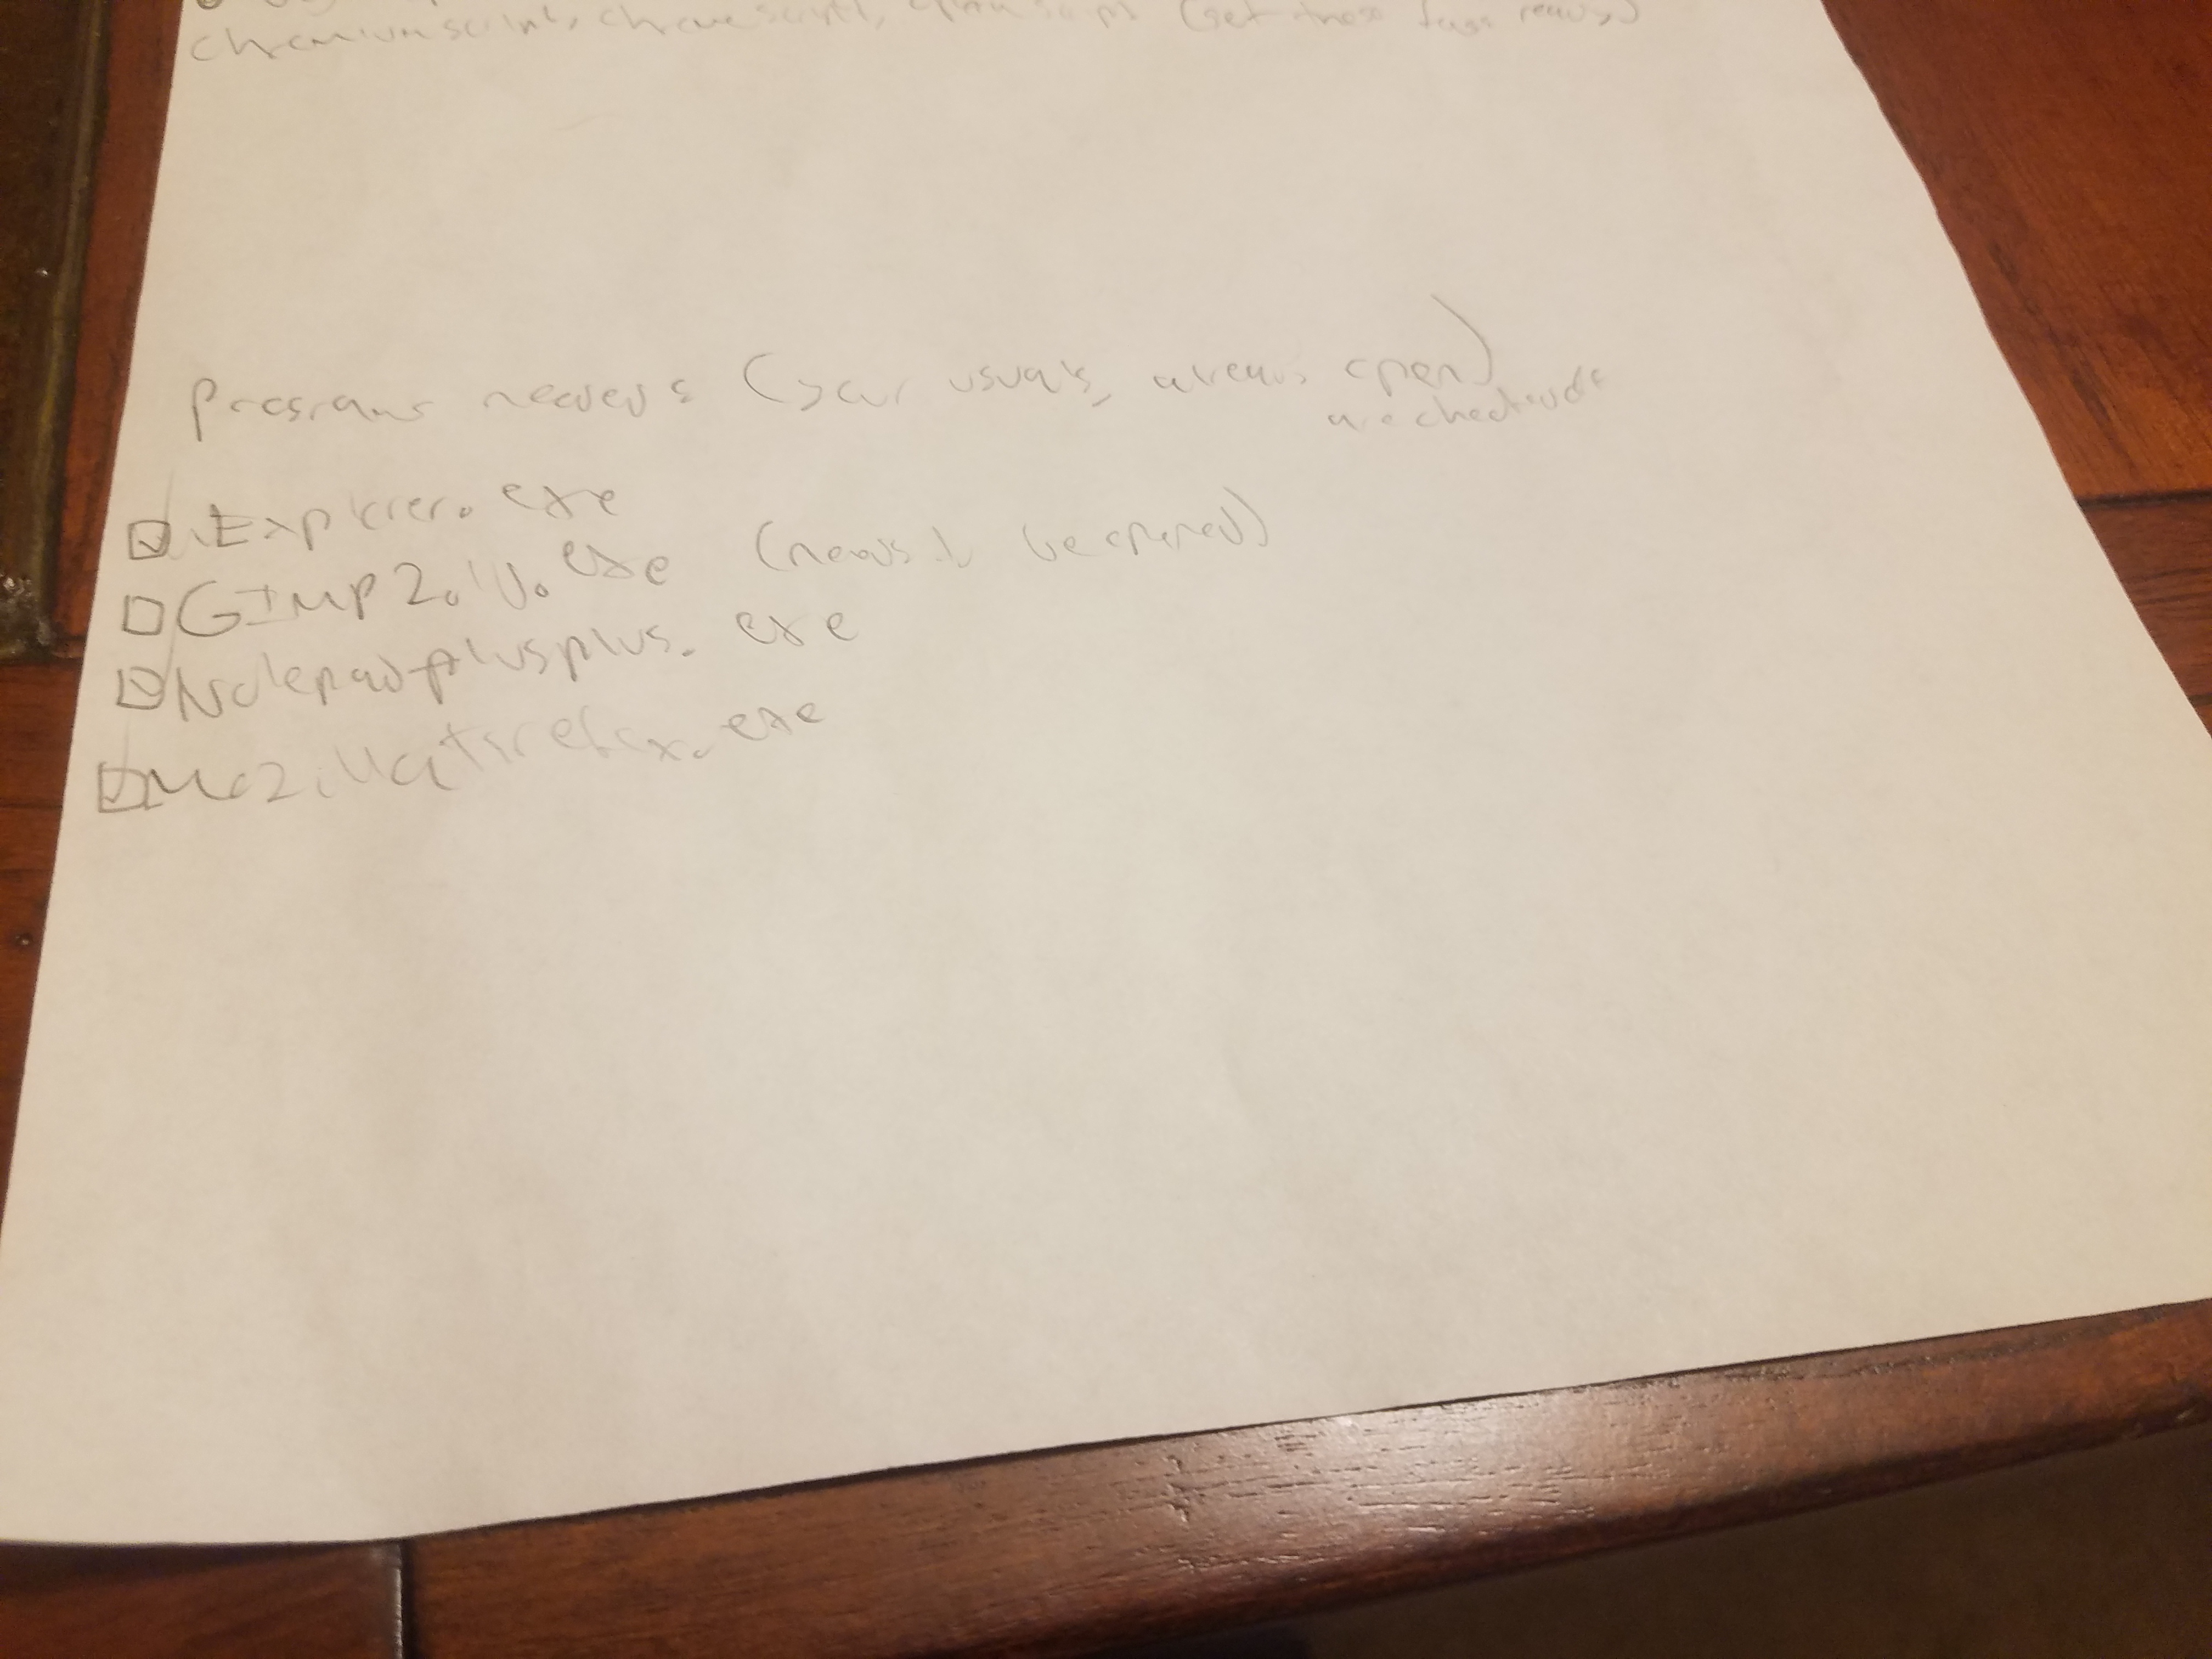 chromiumscript, chromescript, (get those tags ready)
Programs needed: (your usuals, already open)
are checked
☑ Explorer.exe
☐ GIMP2.10.exe (needs to be opened)
☑ Notepadplusplus.exe
☑ MozillaFirefox.exe